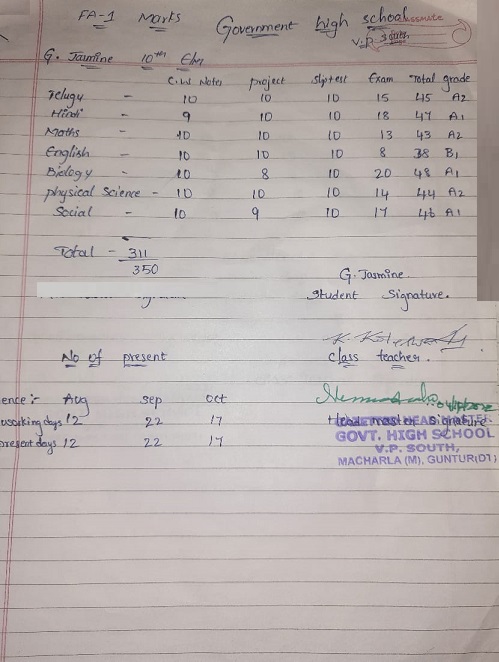 FA-1 Marks Government high school classmate
V.P South
G. Jasmine 10th E/m
C.W Notes project Sliptest Exam Total grade
Telugu - 10 10 10 15 45 A2
Hindi - 9 10 10 18 47 A1
Maths - 10 10 10 13 43 A2
English - 10 10 10 8 38 B1
Biology - 10 8 10 20 48 A1
physical Science - 10 10 10 14 44 A2
Social - 10 9 10 17 46 A1
Total - 311
350
G. Jasmine.
Student Signature.
No of present class teacher.
ence:- Aug Sep Oct
working days 12 22 17 Head master signature
present days 12 22 17 GOVT. HIGH SCHOOL
V.P. SOUTH,
MACHARLA (M), GUNTUR(DT)